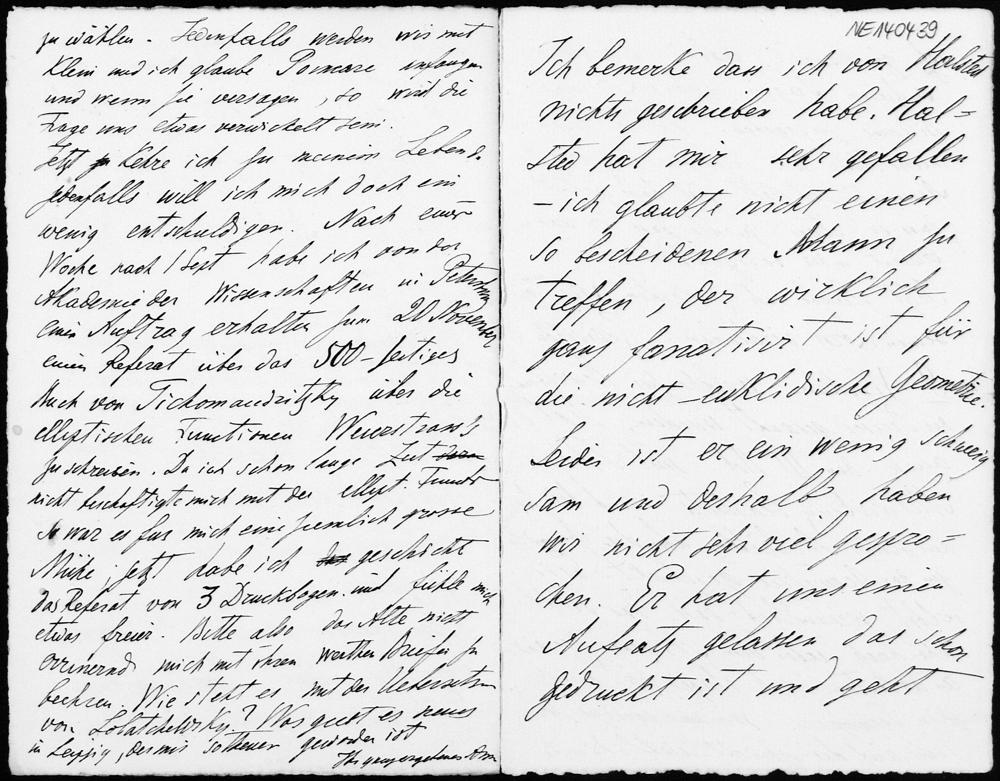 zu wählen. Jedenfalls werden wir mit
Klein und ich glaube Poincare anfangen
und wenn sie versagen, so wird die
Frage uns etwas verwickelt sein.
Jetzt kehre ich zu meinem Leben.
jedenfalls will ich mich doch ein
wenig entschuldigen. Nach einer
Woche nach 1 Sept habe ich von der
Akademie der Wissenschaften in
einen Auftrag erhalten zum 20 November
einen Referat über das 500-seitiges
Buch von Tichomandritzky über die
elliptischen Functionen Weierstrass
zu schreiben. Da ich schon lange Zeit
nicht beschäftigte mich mit der ellipt. Funct
so war es für mich eine ziemlich grosse
Mühe; jetzt habe ich geschickt
das Referat von 3 Druckbogen und fühle mich
etwas freier. Bitte also das Alte nicht
errinernd mich mit ihren werthen Briefen zu
beehren. Wie steht es mit der Uebersetzun
von Lobatchewsky? Was giebt es neues
in Leipzig, das mir so theuer geworden ist
Ihr ganz ergebenes
NE140439
Ich bemerke dass ich von Halsted
nichts geschrieben habe. Hal=
sted hat mir sehr gefallen
– ich glaubte nicht einen
so bescheidenen Mann zu
treffen, der wirklich
ganz fanatisirt ist für
die nicht-euklidische Geometrie.
Leider ist er ein wenig schweig
sam und deshalb haben
wir nicht sehr viel gespro=
chen. Er hat uns einen
Aufsatz gelassen das schon
gedruckt ist und geht